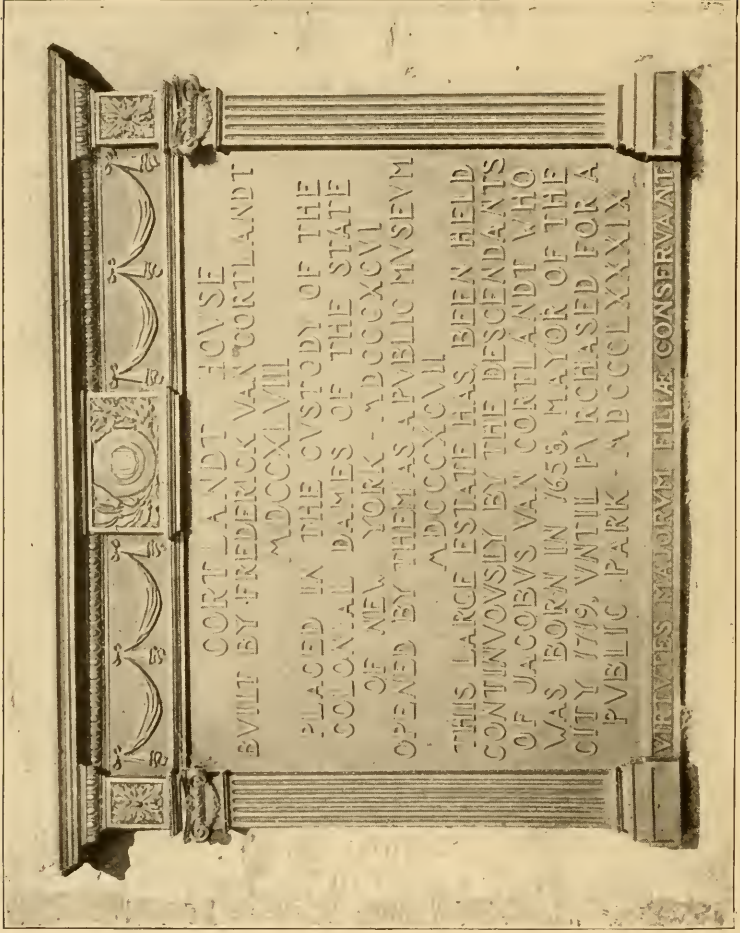 CORTLANDT HOVSE
BVILT BY FREDERICK VAN CORTLANDT
MDCCXLVIII
PLACED IN THE CVSTODY OF THE
COLONIAL DAMES OF THE STATE
OF NEW YORK - MDCCCXCVI
OPENED BY THEM AS A PVBLIC MVSEVM
MDCCCXCVII
THIS LARGE ESTATE HAS BEEN HELD
CONTINVOVSLY BY THE DESCENDANTS
OF JACOBVS VAN CORTLANDT WHO
WAS BORN IN 1658, MAYOR OF THE
CITY 1719, VNTIL PVRCHASED FOR A
PVBLIC PARK - MDCCCLXXXIX
VIRTVTES MAJORVM FILIÆ CONSERVANT